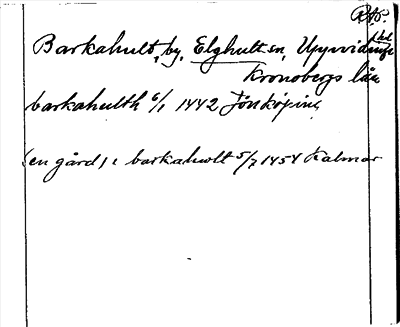 RAP.
Barkahult, by, Elghult sn, Uppvidinge hd
Kronobergs län
barkahulth 6/1 1442 Jönköping
(en gård) i barkahwlt 5/7 1454 Kalmar